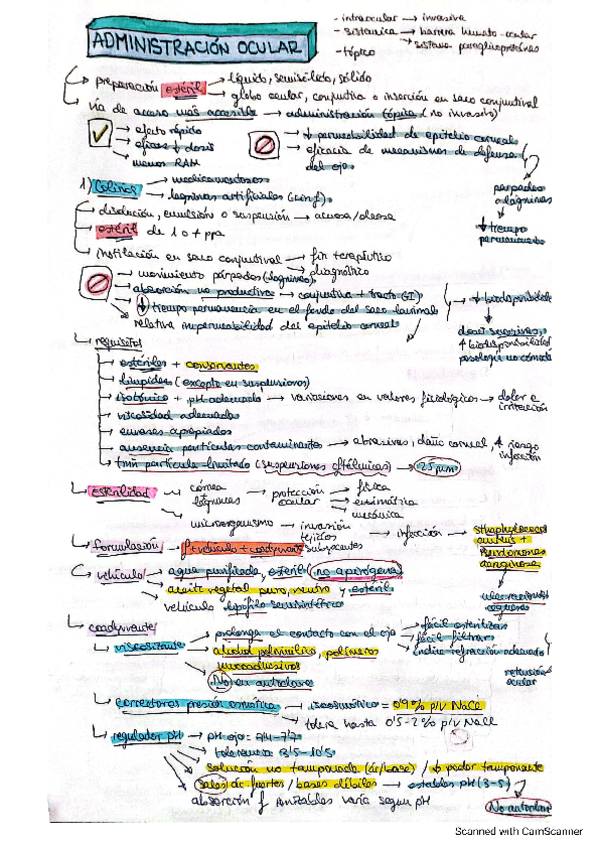 ADMINISTRACIÓN OCULAR
- intraocular → invasiva
- sistémica → barrera hemato-ocular
- tópico
→ preparación estéril → líquido, semisólido, sólido
→ globo ocular, conjuntiva o inserción en saco conjuntival
→ vía de acceso más accesible → administración tópica (no invasiva)
→ efecto rápido
→ eficaz ↓ dosis
→ menos RAM
→ ↓ permeabilidad de epitelio corneal
→ eficacia de mecanismos de defensa del ojo
parpadeo
o lágrimas
↓ tiempo
permanencia
1) Colirios → medicamentosos
→ lágrimas artificiales
disolución, emulsión o suspensión → acuosa/oleosa
estéril de 1 o + ppa
instilación en saco conjuntival → fin terapéutico
→ diagnóstico
→ movimiento párpados (lágrimas)
→ absorción no productiva → conjuntiva + tracto GI
→ ↓ tiempo permanencia en el fondo del saco
relativa impermeabilidad del epitelio corneal
→ ↓ biodisponibilidad
↑ biodisponibilidad
posología no cómoda
→ requisitos
→ estériles + conservantes
→ límpidas (excepto en suspensiones)
→ isotónico + pH adecuado → variaciones en valores fisiológicos → dolor e irritación
→ viscosidad adecuada
→ envases apropiados
→ ausencia partículas contaminantes → abrasivas, daño corneal, ↑ riesgo infección
→ tmñ partícula limitado (suspensiones oftálmicas) → 25 µm
→ esterilidad
córnea
lágrimas → protección ocular → física
→ enzimática
→ mecánica
microorganismo → invasión tejidos → infección → staphylococcus aureus + Pseudomonas aeruginosa
ulceraciones
→ formulación → f + vehículo + coadyuvante
→ vehículo → agua purificada, estéril (no apirógena)
→ aceite vegetal puro, neutro y estéril
vehículo lipófilo semisintético
→ coadyuvante
→ viscosizante → prolonga el contacto con el ojo → fácil esterilizar
→ fácil filtrar
→ índice refracción adecuado
→ alcohol polivinílico, polímeros mucoadhesivos
→ No en autoclave
ocular
→ correctores presión osmótica → isoosmótico = 0'9% p/v NaCl
→ tolera hasta 0'5-2% p/v NaCl
→ regulador pH → pH ojo = 7'4-7'7
→ tolerancia 3'5-10'5
→ solución no tamponada (ác/base) / ↓ poder tamponante
→ sales ác. fuertes / bases débiles → estables pH (3-5)
absorción f ionizables varía según pH
No autoclave
Scanned with CamScanner